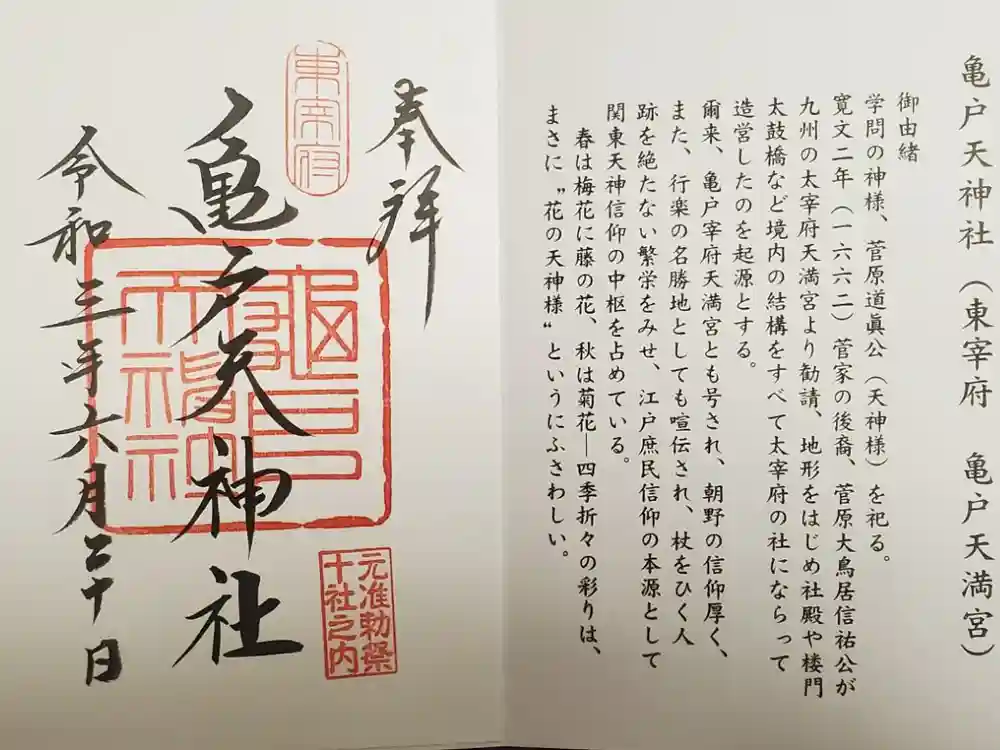 亀戸天神社（東宰府　亀戸天満宮）
御由緒
学問の神様、菅原道眞公（天神様）を祀る。
寛文二年（一六六二）菅家の後裔、菅原大鳥居信祐公が
九州の太宰府天満宮より勧請、地形をはじめ社殿や楼門
太鼓橋など境内の結構をすべて太宰府の社にならって
造営したのを起源とする。
爾来、亀戸宰府天満宮とも号され、朝野の信仰厚く、
また、行楽の名勝地としても喧伝され、杖をひく人
跡を絶たない繁栄をみせ、江戸庶民信仰の本源として
関東天神信仰の中枢を占めている。
春は梅花に藤の花、秋は菊花―四季折々の彩りは、
まさに〝花の天神様〟というにふさわしい。
奉拝
東宰府
亀戸天神社
元准勅祭
十社之内
令和三年六月二十日